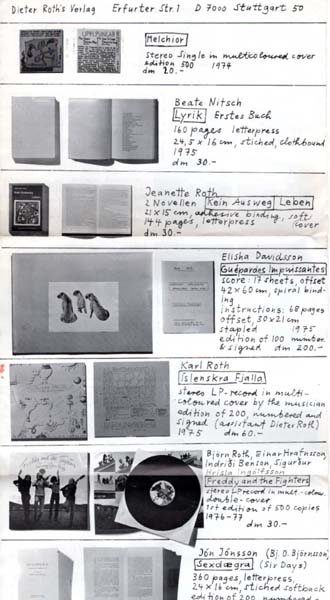 Dieter Roth's Verlag Erfurter Str 1 D 7000 Stuttgart 50
Melchior
stereo single in multicoloured cover
edition 500 1974
dm 20.-
Beate Nitsch
Lyrik Erstes Buch
160 pages letterpress
24,5 x 16 cm, stiched, clothbound
1975
dm 30.-
Jeanette Roth
2 Novellen Kein Ausweg Leben
21 x 15 cm, adhesive binding, soft cover
144 pages, letterpress
dm 30.-
Elisha Davidsson
Guépardes Impuissantes
score: 17 sheets, offset
42 x 60 cm, spiral bind-
ing
instructions: 68 pages
offset, 30 x 21 cm
stapled 1975
edition of 100 number.
& signed dm 200.-
Karl Roth
Íslenskra Fjalla
stereo LP-record in multi-
coloured cover by the musician
edition of 200, numbered and
signed (assistant Dieter Roth)
1975 dm 60.-
Björn Roth, Einar Hrafnsson,
Indriði Benson, Sigurður
Ingólfsson
Freddy and the Fighters
stereo LP record in mult.-colour.
double-cover
1st edition of 500 copies
1976-77
dm 30.-
Jón Jónsson (Bj. O. Björnsson)
Sexdægra (Six Days)
360 pages, letterpress,
24 x 16 cm, stiched softback
edition of 200 numbered -